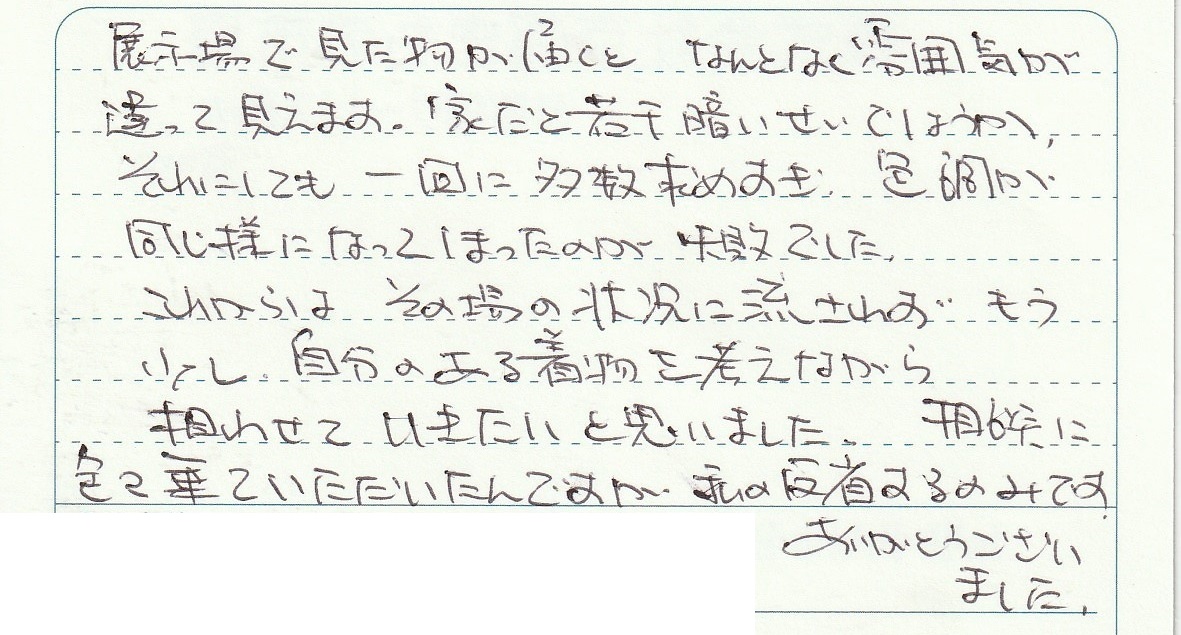 展示場で見た物が届くと なんとなく雰囲気が
違って見えます。家だと若干暗いせいでしょうか、
それにしても 一回に多数求めすぎ、色調が
同じ様になってしまったのが失敗でした。
これからは その場の状況に流されず もう
少し、自分のある着物を考えながら
わせていきたいと思いました。 相談に
色々乗ていただいたんですが 私の反省するのみです
ありがとうござい
ました。